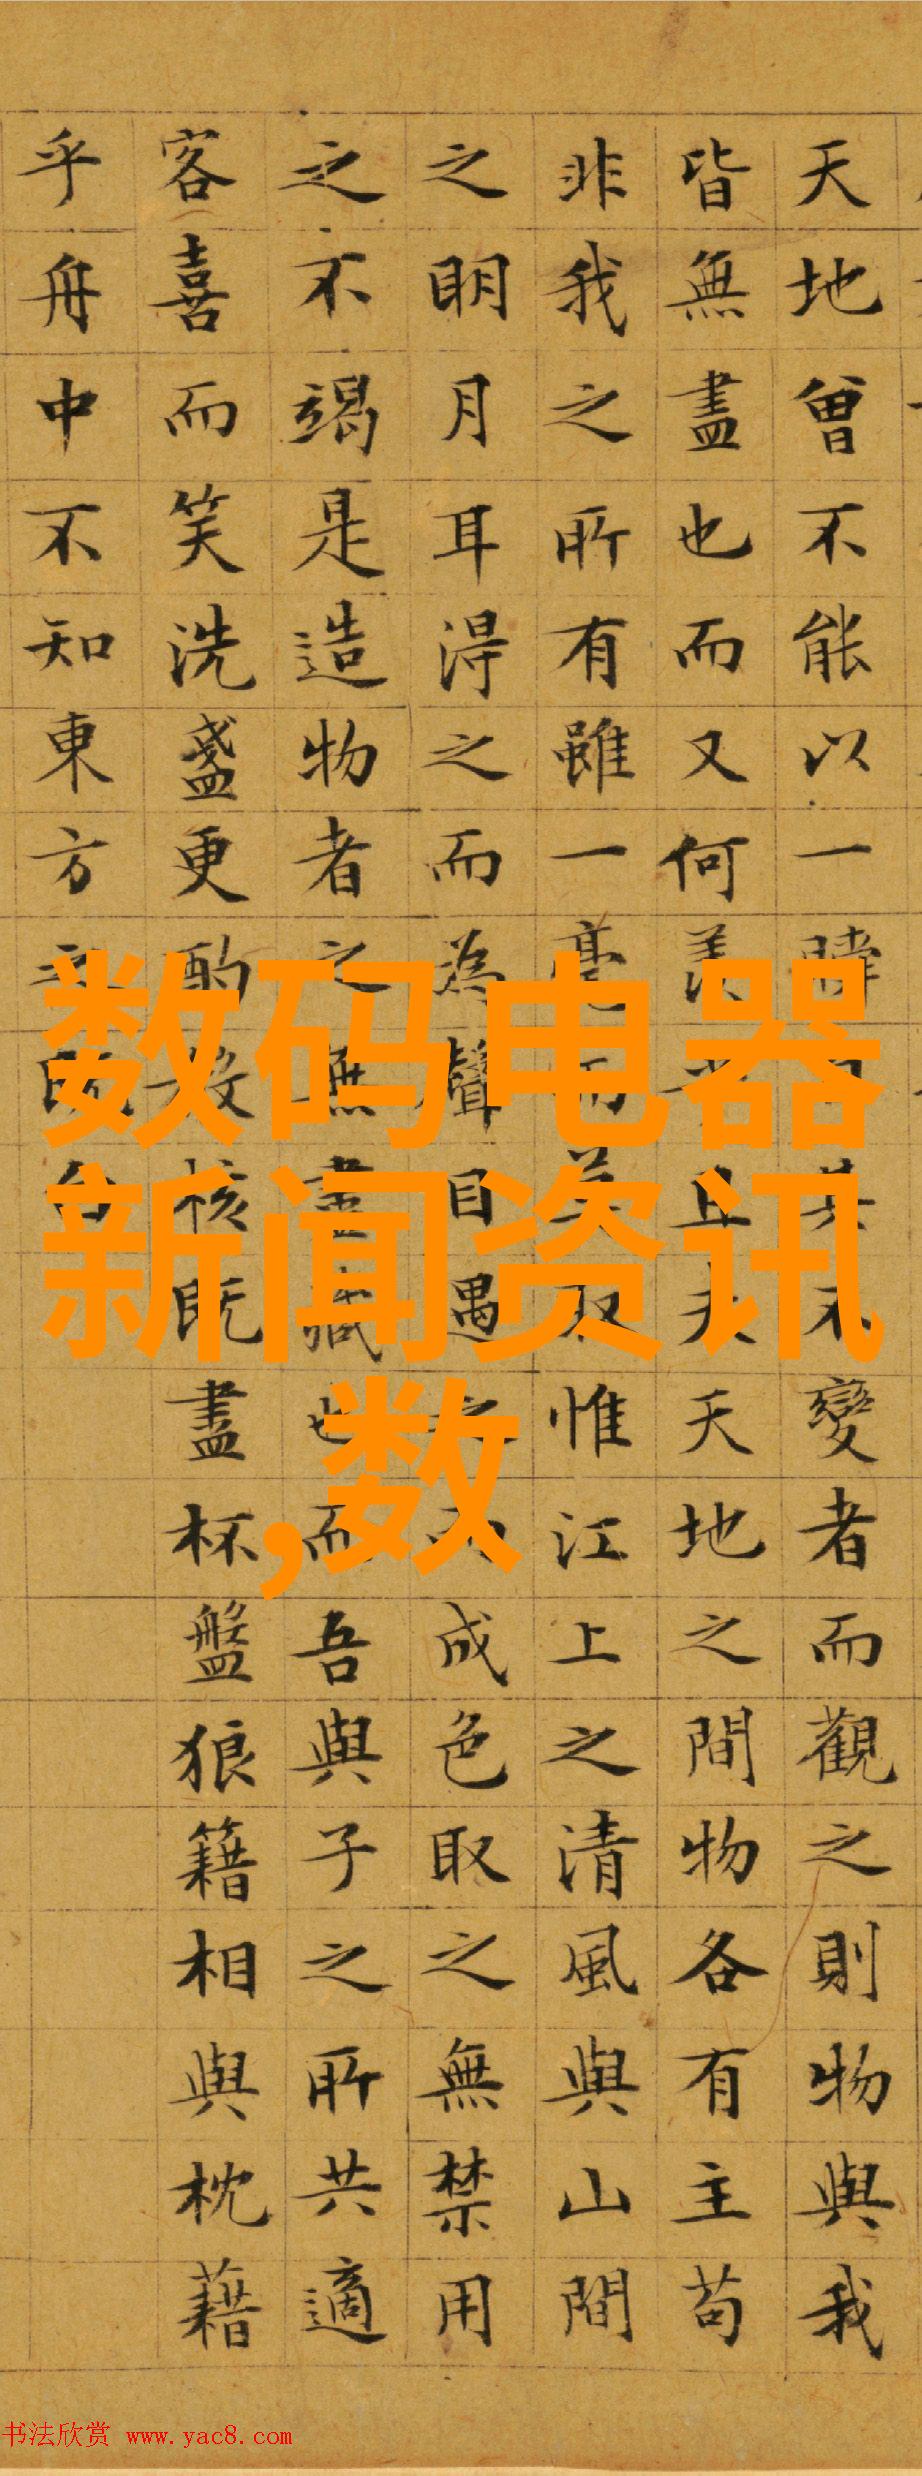 天地曾不能以一瞬其不變者而觀之則物與我
皆無盡也而又何羨乎且夫天地之間物各有主苟
非我之所有雖一毫而莫取惟江上之清風與山間
之眀月耳得之而為聲目遇之而成色取之無禁用
之不竭是造物者之無盡藏也而吾與子之所共適
客喜而笑洗盞更酌肴核既盡杯盤狼籍相與枕藉
乎舟中不知東方之既白
数码电器
新闻资讯
,数
书法欣赏 www.yac8.com